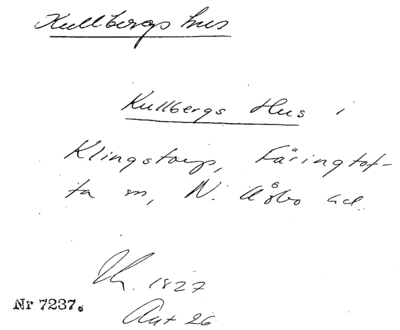 Kullbergs hus
Kullbergs Hus i
Klingstorp, Färingtof-
ta sn, N. Åsbo hd.
Th. 1827
Ant 26
Nr 7237.